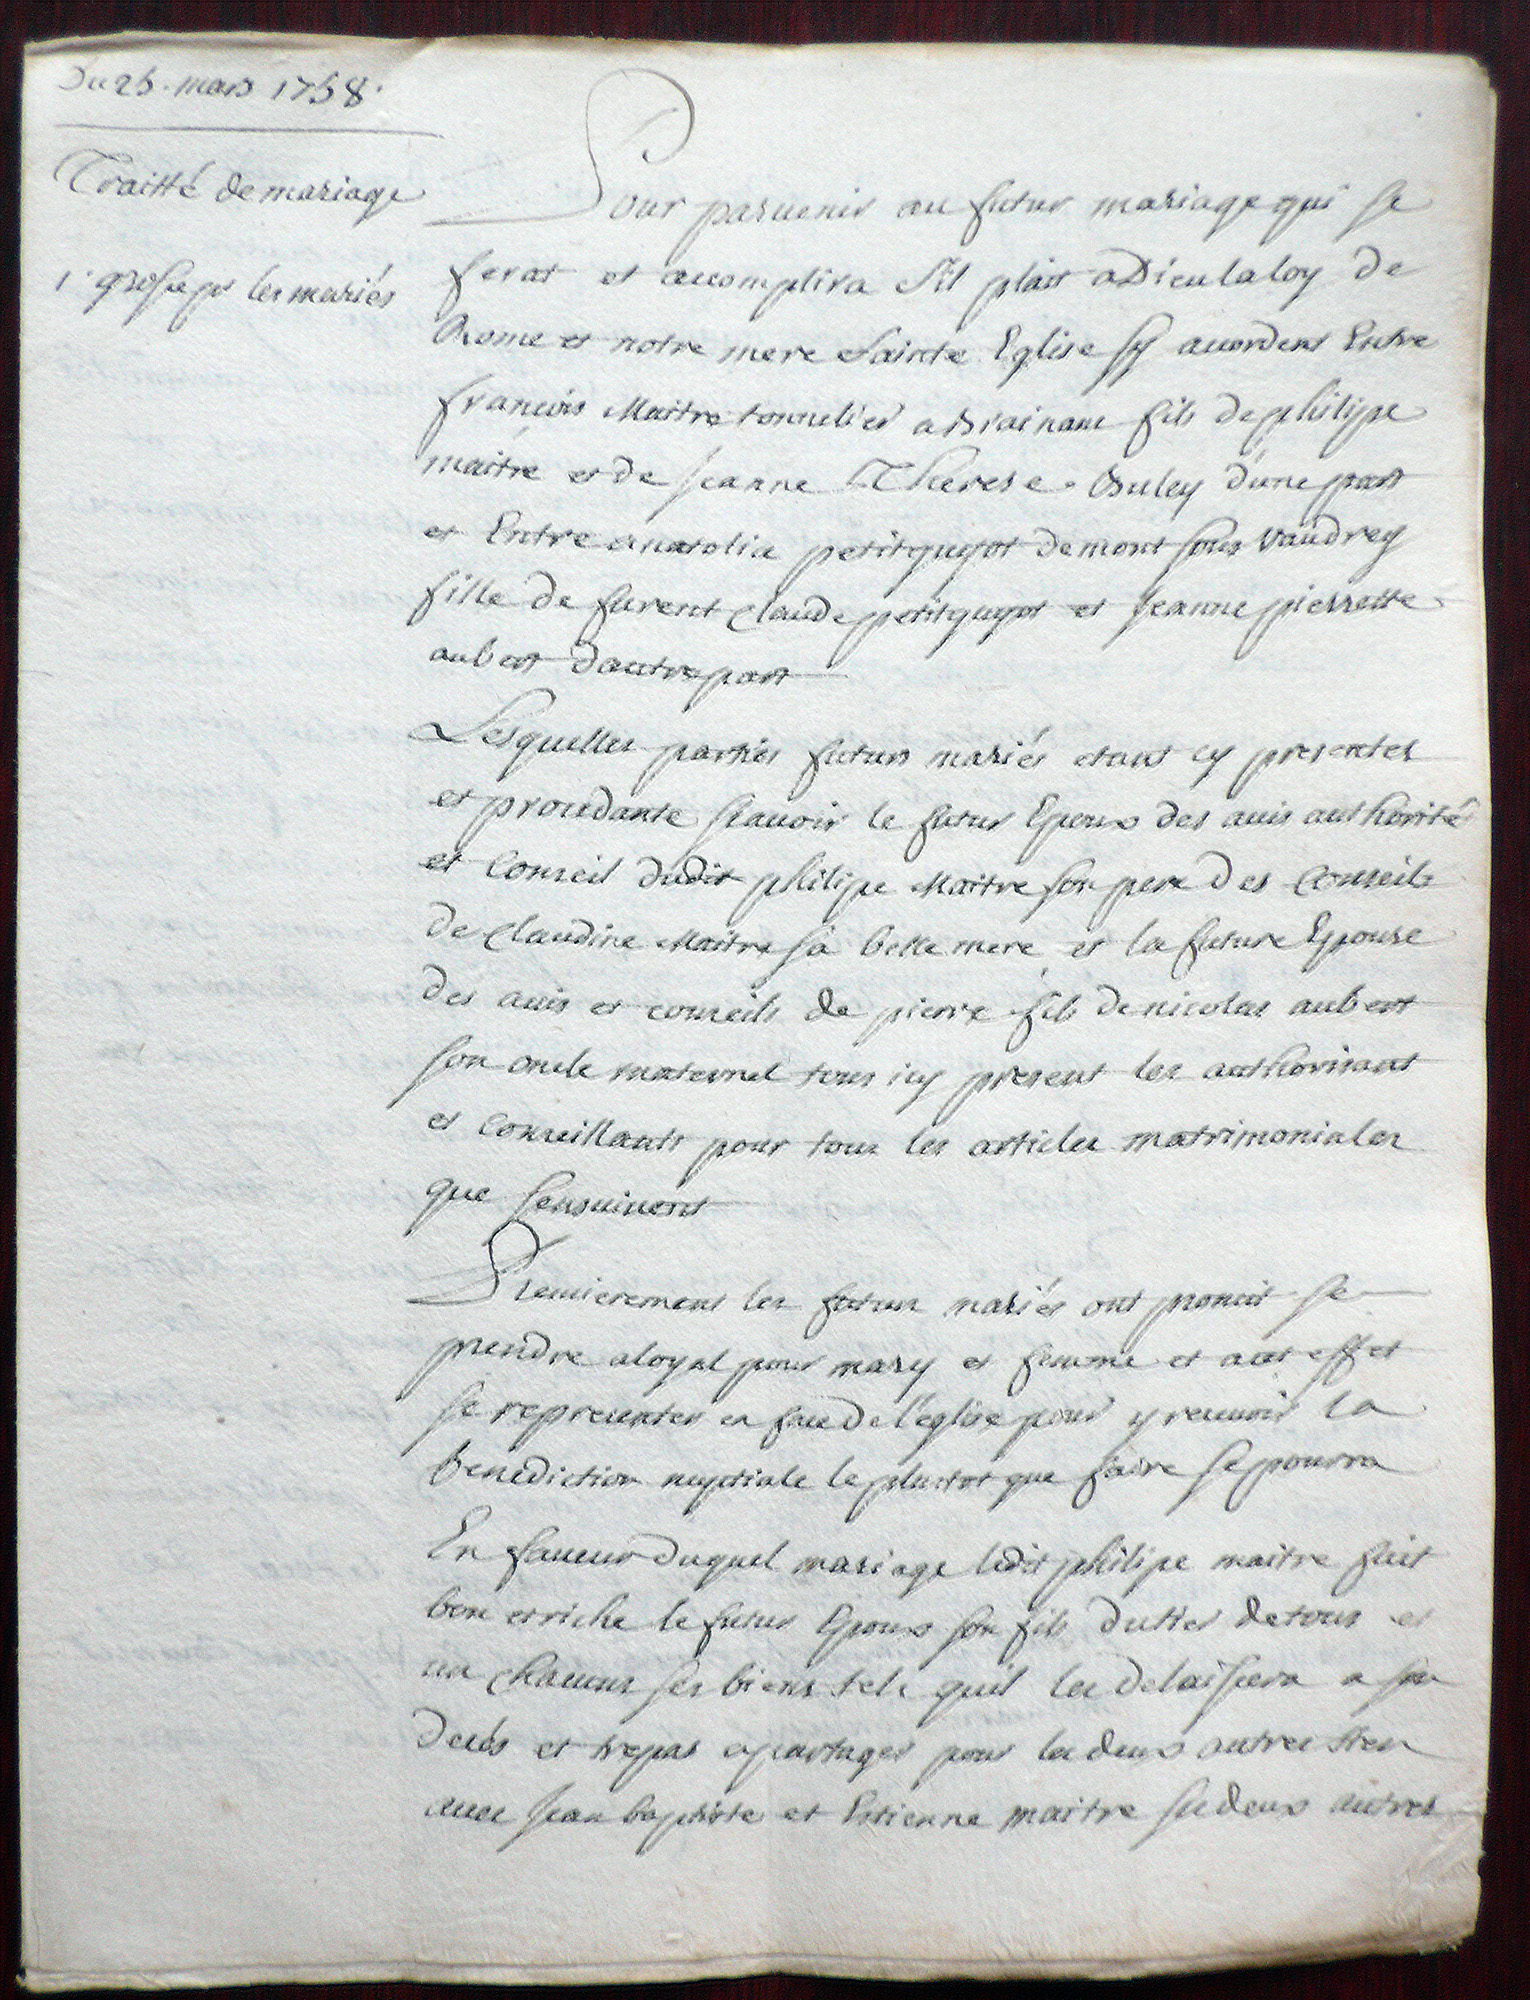 Du 25. mars 1758.
Traitté de mariage
1e grosse pr les mariés
Pour paruenir au futur mariage qui se
ferat et accomplira s'il plait a Dieu la loy de
Rome et notre mere Sainte Eglise sy acordent Entre
francois Maitre tonnelier a fils de philipe
maitre et de jeanne Therese Buley d'une part
et Entre anatolia petitguyot de mont sous Vaudrey
fille de furent Claude petitguyot et jeanne pierrette
aubert dautre part
Lesquelles parties futurs mariés etant cy presentes
et procedante scauoir le futur Epoux des auis authorité
et Conseil dudit philipe Maitre son pere des Conseils
de Claudine Maitre sa belle mere et la future Epouse
des auis et conseils de pierre fils de nicolas aubert
son oncle maternel tous icy present les authorisant
et conseillants pour tous les articles matrimoniales
que sensuiuent
Premierement les futur mariés ont promit se
prendre a loyal pour mary et femme et acet effet
se representer en face de l'eglise pour y receuoir la
benediction nuptiale le plustot que faire se pourra
En faueur duquel mariage ledit philipe maitre fait
bon et riche le futur Epoux son fils du tier de tous et
un chacuns ses biens tels quil les delaissera a son
deces et trepas a partager pour les deux autres tier
auec jean baptiste et Estienne maitre ses deux autres